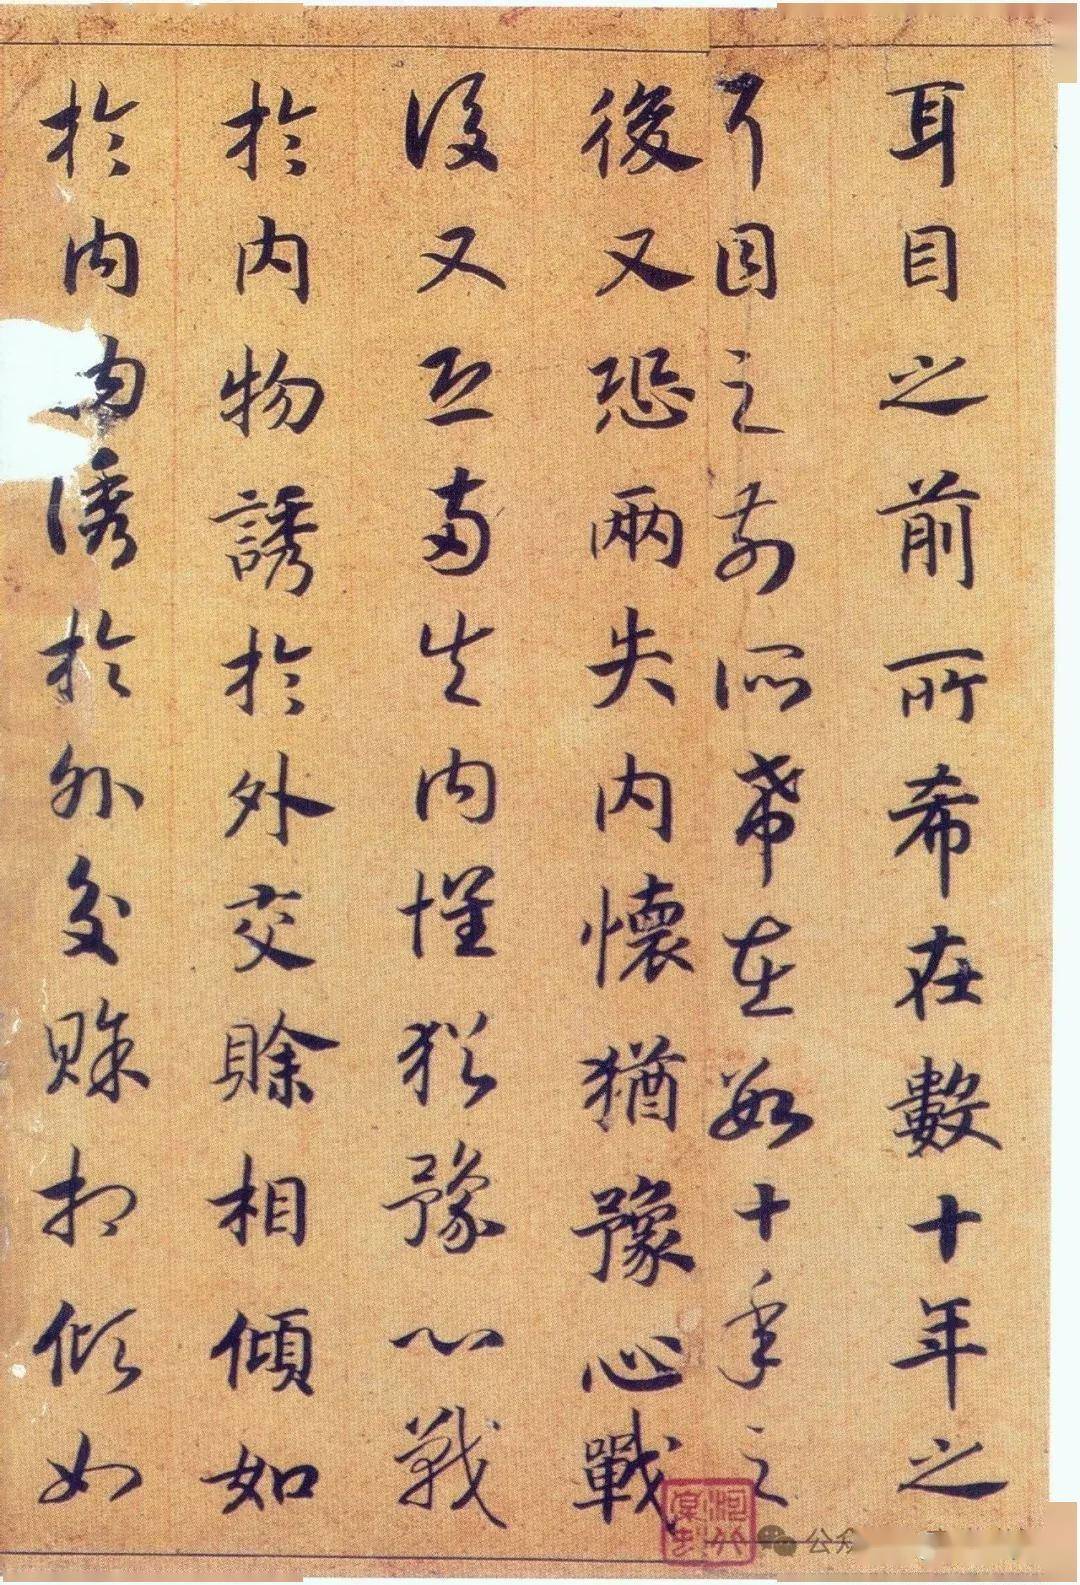 耳目之前所希在數十年之
耳目之前所希在數十年之
後又恐兩失内懷猶豫心戰
後又恐兩失内懷猶豫心戰
於内物誘於外交賒相傾如
於内誘於外交賒相傾如
公众